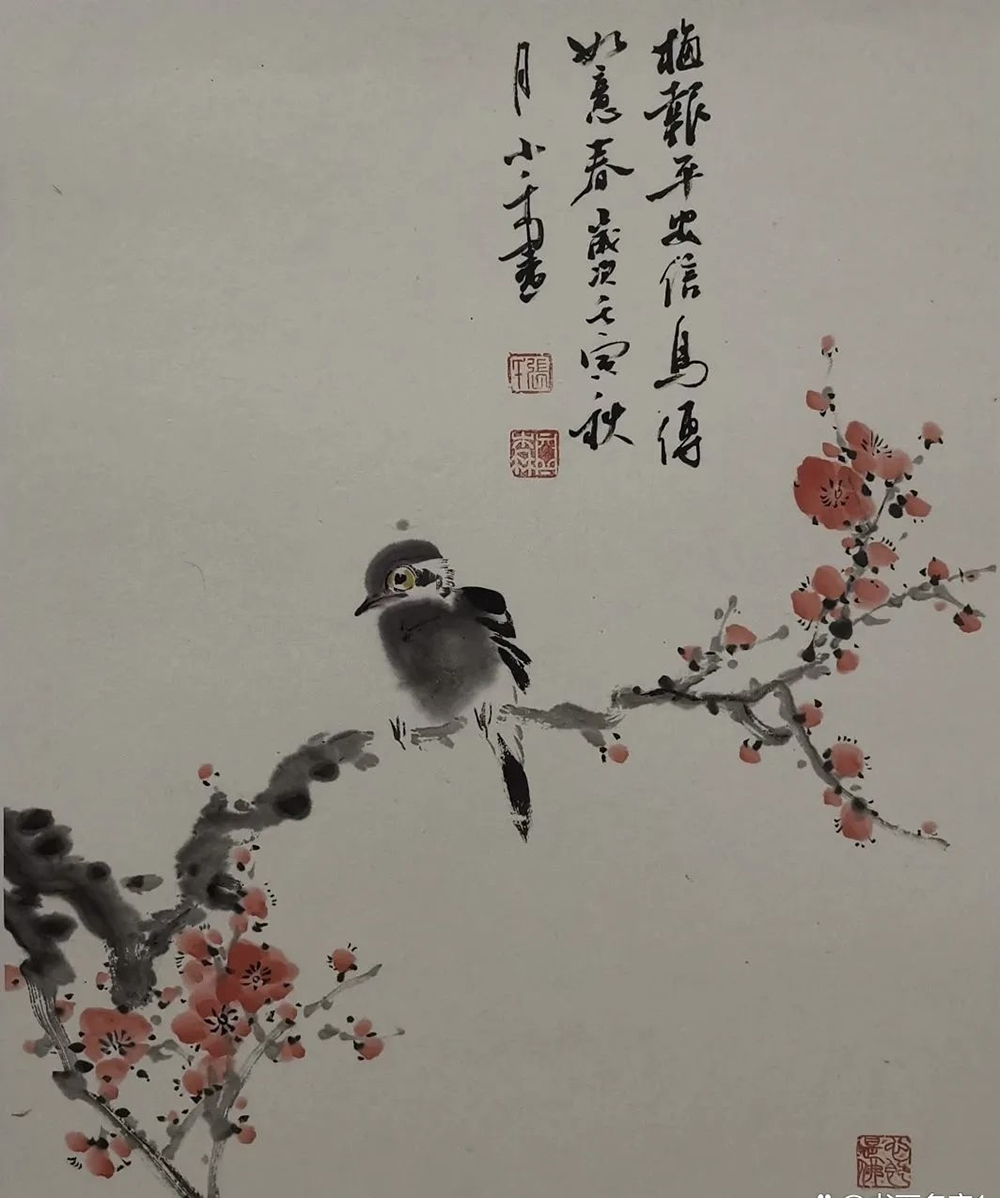 梅報平安信鳥傳
如意春歲次壬寅秋
月小千畫